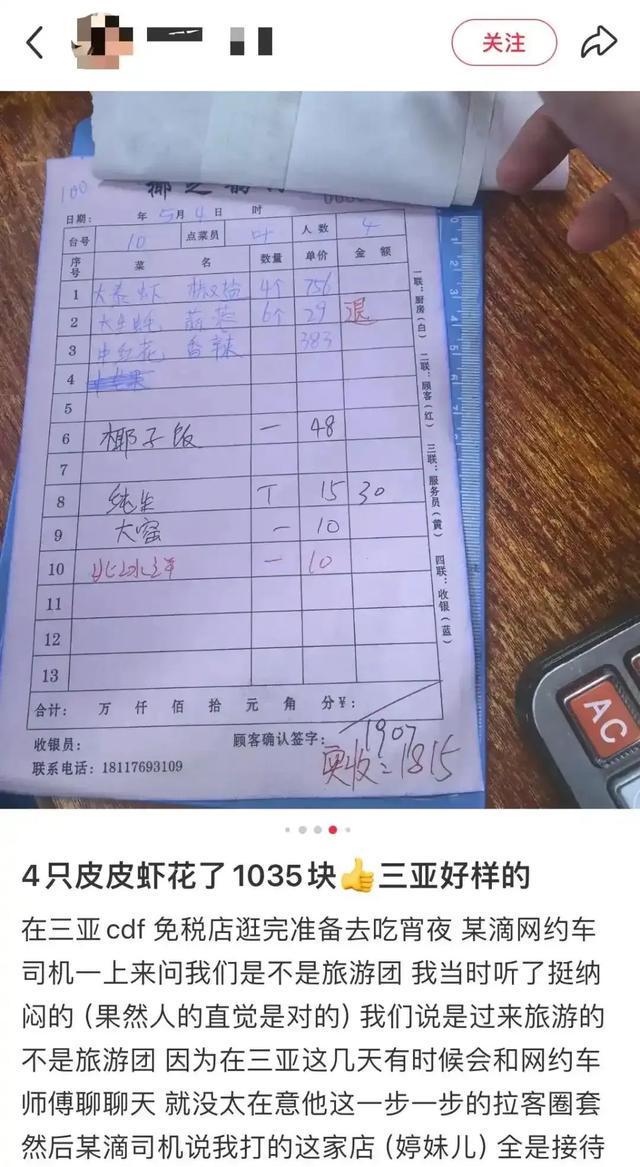 关注
100
日期： 年 5月 4日 时
台号 10 点菜员 叶 人数 4
序号 菜 名 数量 单价 金额
1 大泰虾 4个 756
2 大生蚝 蒜蓉 6个 29 退
3 中红花 香辣 383
4
5
6 椰子饭 一 48
7
8 纯生 T 15 30
9 大窑 一 10
10 一 10
11
12
13
合计： 万 仟 佰 拾 元 角 分¥：
1907
收银员： 顾客确认签字：
实收：1815
联系电话：18117693109
一联：厨房（白） 二联：顾客（红） 三联：服务员（黄） 四联：收银（蓝）
AC
4只皮皮虾花了1035块👍三亚好样的
在三亚cdf 免税店逛完准备去吃宵夜 某滴网约车
司机一上来问我们是不是旅游团 我当时听了挺纳
闷的（果然人的直觉是对的）我们说是过来旅游的
不是旅游团 因为在三亚这几天有时候会和网约车
师傅聊聊天 就没太在意他这一步一步的拉客圈套
然后某滴司机说我打的这家店（婷妹儿）全是接待